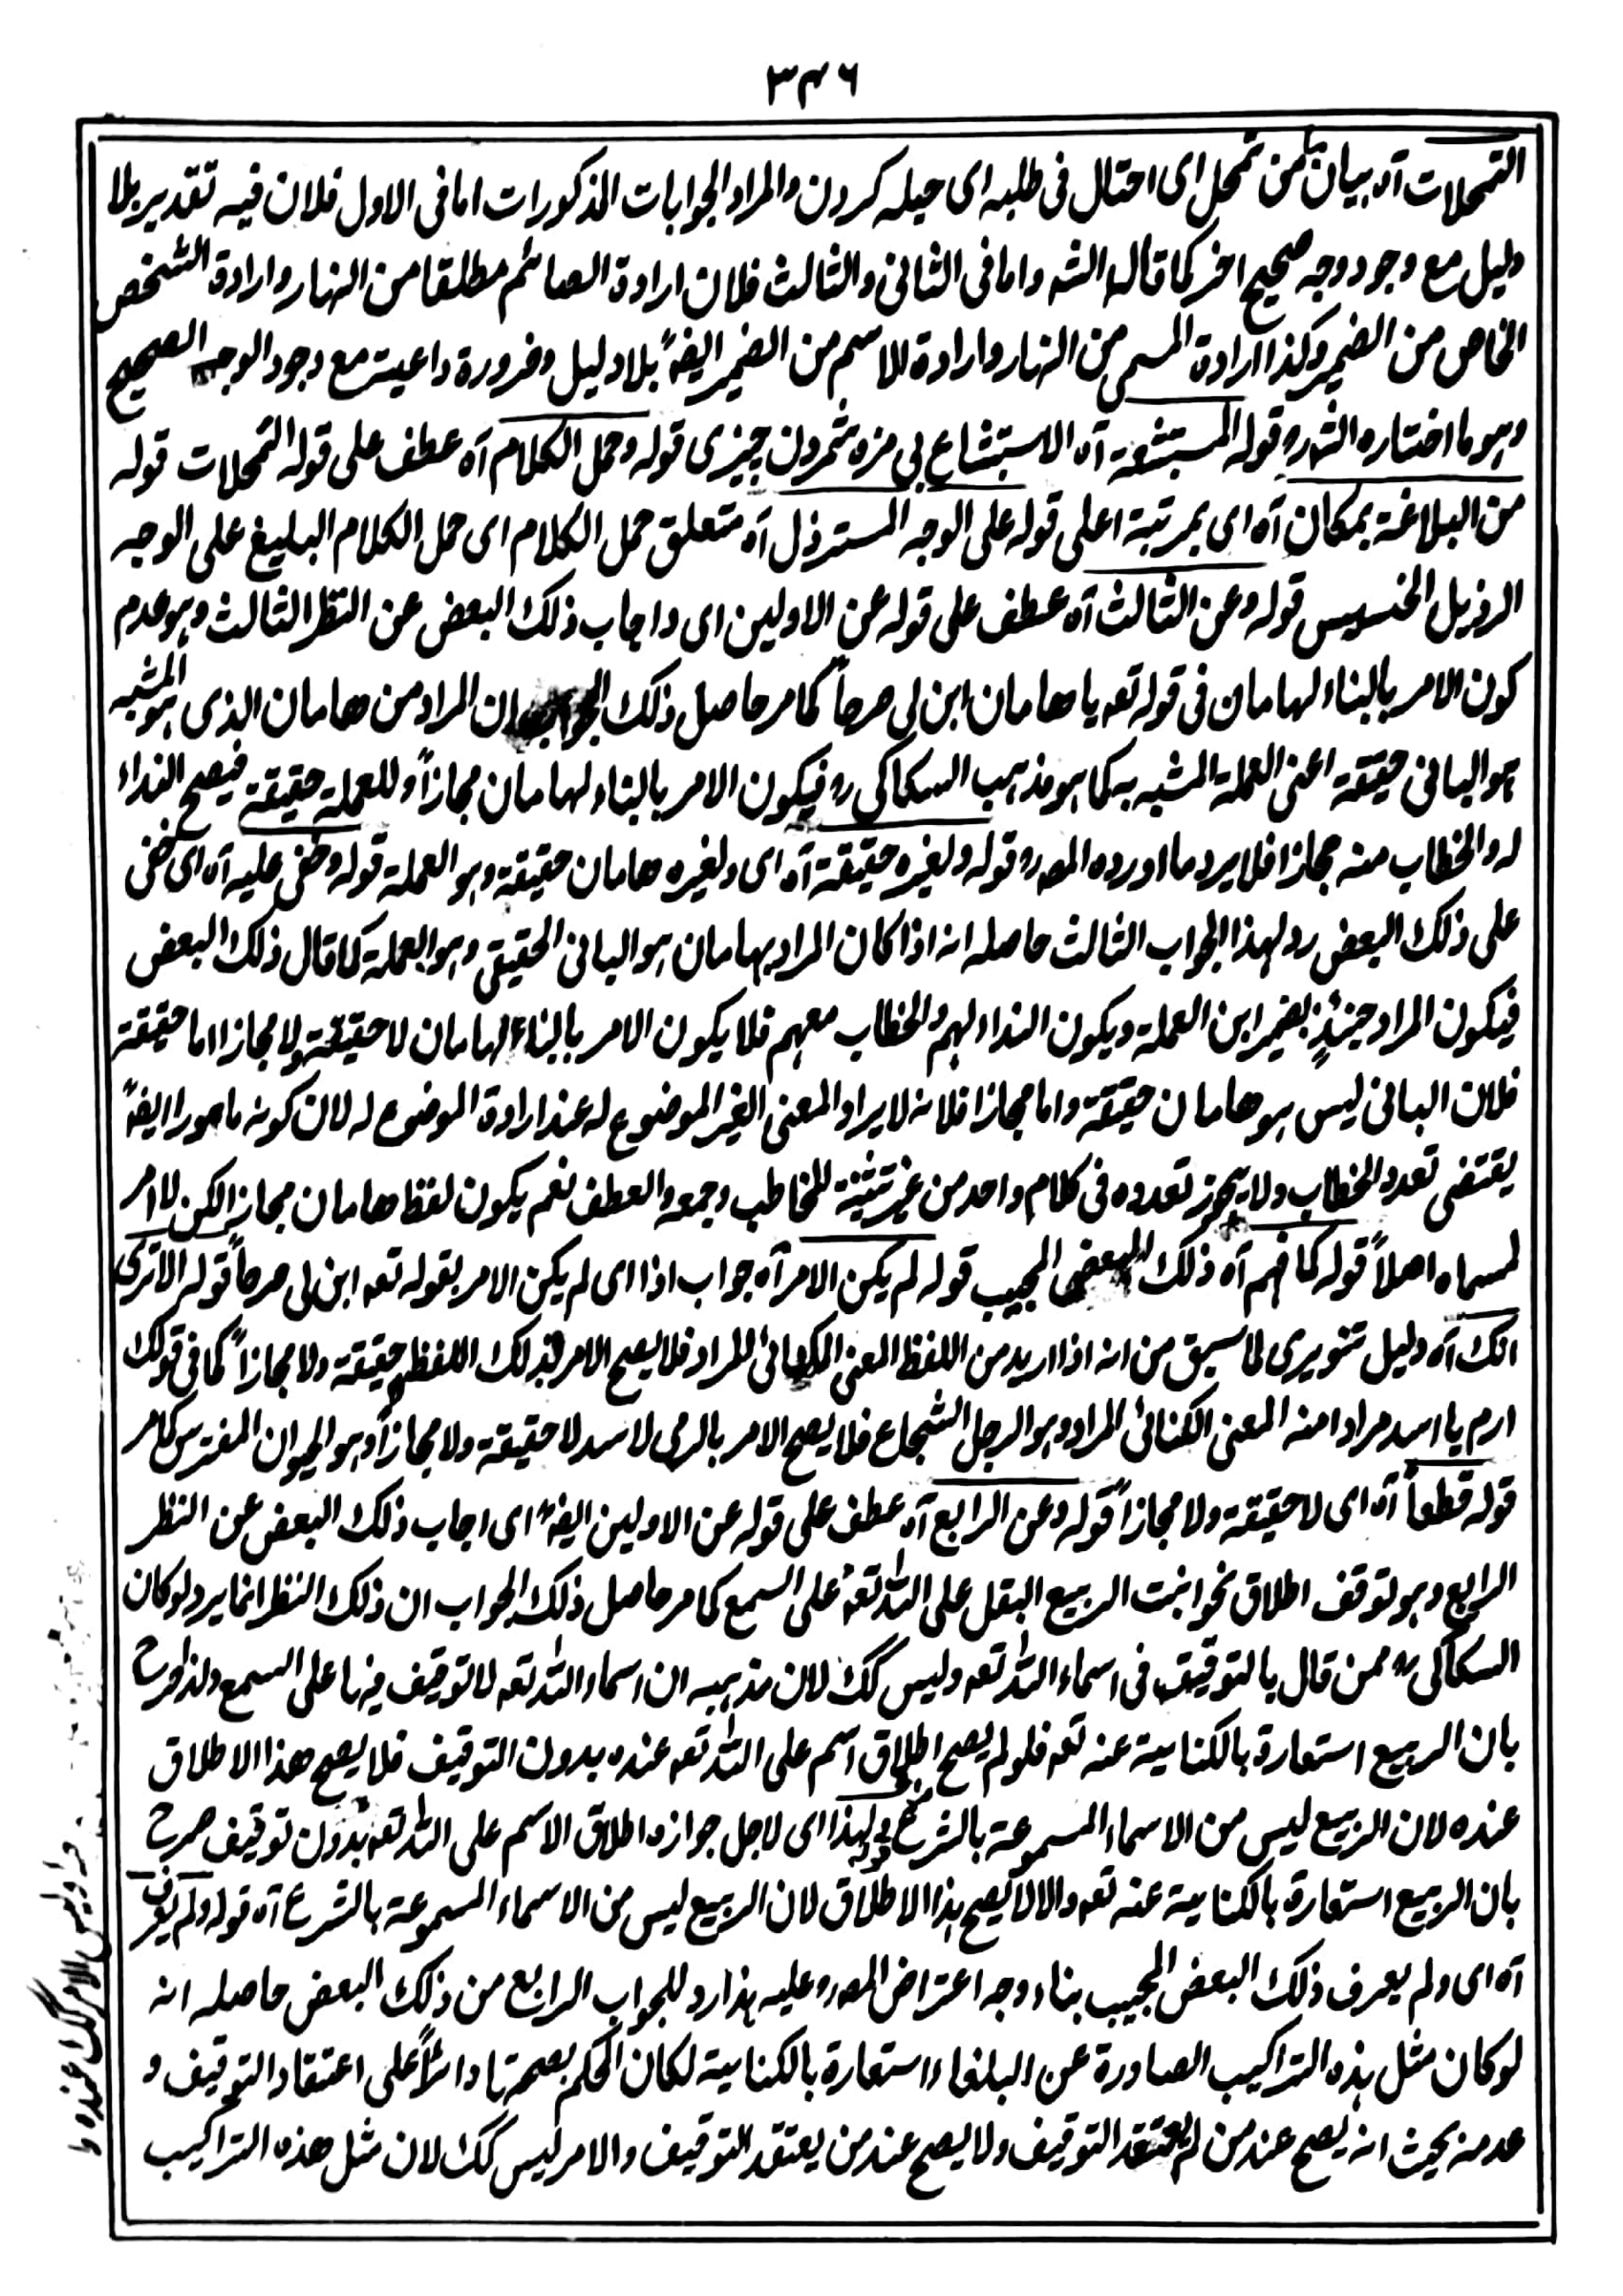 ٣٤٦
التمحلات آه بيان ما من تمحل اى احتال فى طلبه اى حيله كردن والمراد الجوابات المذكورات اما فى الاول فلان فيه تقدير بلا
دليل مع وجود وجه صحيح اخر كما قاله الشه واما فى الثانى والثالث فلان ارادة الصائم مطلقا من النهار وارادة الشخص
الخاص من الضمير وكذا ارادة المسمى من النهار وارادة الاسم من الضمير ايضاً بلا دليل وضرورة داعية مع وجود الوجه الصحيح
وهو ما اختاره الشه ره قوله المستبشعة آه الاستبشاع بى مزه شمردن چيزى قوله وحمل الكلام آه عطف على قوله التمحلات قوله
من البلاغة بمكان آه اى بمرتبة اعلى قوله على الوجه المسترذل آه متعلق حمل الكلام اى حمل الكلام البليغ على الوجه
الرذيل الخسيس قوله وعن الثالث آه عطف على قوله عن الاولين اى واجاب ذلك البعض عن النظر الثالث وهو عدم
كون الامر بالبناء لهامان فى قوله تعه يا هامان ابن لى صرحاً كما مر حاصل ذلك الجواب ان المراد من هامان الذى هو المشبه
هو البانى حقيقة اعنى العملة المشبه به كما هو مذهب السكاكى ره فيكون الامر بالبناء لهامان مجازاً وللعملة حقيقة فيصح النداء
له والخطاب منه مجازا فلا يرد ما اورده المصه ره قوله ولغيره حقيقة آه اى ولغيره هامان حقيقة وهو العملة قوله وخفى عليه آه اى خفى
على ذلك البعض رد لهذا الجواب الثالث حاصله انه اذا كان المراد بهامان هو البانى الحقيقى وهو العملة كما قال ذلك البعض
فيكون المراد حينئذٍ بضمير ابن العملة ويكون النداء لهم والخطاب معهم فلا يكون الامر بالبناء لهامان لا حقيقة ولا مجازا اما حقيقة
فلان البانى ليس هو هامان حقيقة واما مجازا فلانه لا يراد المعنى الغير الموضوع له عند ارادة الموضوع له لان كونه مامورا ايضاً
يقتضى تعدد الخطاب ولا يجوز تعدده فى كلام واحد من غير تثنية للمخاطب وجمعه والعطف نعم يكون لفظ هامان مجازا لكن لا امر
لمسماه اصلاً قوله كما فهم آه ذلك البعض المجيب قوله لم يكن الامر آه جواب اذا اى لم يكن الامر بقوله تعه ابن لى صرحاً قوله الا ترى
انك آه دليل تنويرى لما سبق من انه اذا اريد من اللفظ المعنى الكنائى المراد فلا يصح الامر بذلك اللفظ حقيقة ولا مجازاً كما فى قولك
ارم يا اسد مرادا منه المعنى الكنائى المراد وهو الرجل الشجاع فلا يصح الامر بالرمى لاسد لا حقيقة ولا مجازاً وهو الحيوان المفترس كما مر
قوله قطعاً آه اى لا حقيقة ولا مجازاً قوله وعن الرابع آه عطف على قوله عن الاولين ايضاً اى اجاب ذلك البعض عن النظر
الرابع وهو توقف اطلاق نحو انبت الربيع البقل على الله تعه على السمع كما مر حاصل ذلك الجواب ان ذلك النظر انما يرد لو كان
السكاكى ره ممن قال بالتوقيف فى اسماء الله تعه وليس كك لان مذهبه ان اسماء الله تعه لا توقيف فيها على السمع ولذا صرح
بان الربيع استعارة بالكناية عنه تعه فلو لم يصح اطلاق اسم على الله تعه عنده بدون التوقيف فلا يصح هذا الاطلاق
عنده لان الربيع ليس من الاسماء المسموعة بالشرع قوله ولهذا اى لاجل جوازه اطلاق الاسم على الله تعه بدون توقيف صرح
بان الربيع استعارة بالكناية عنه تعه والا لا يصح هذا الاطلاق لان الربيع ليس من الاسماء المسموعة بالشرع آه قوله ولم يعرف
آه اى ولم يعرف ذلك البعض المجيب بناء وجه اعتراض المصه ره عليه هذا رد للجواب الرابع من ذلك البعض حاصله انه
لو كان مثل هذه التراكيب الصادرة عن البلغاء استعارة بالكناية لكان الحكم بصحتها دائراً على اعتقاد التوقيف و
عدمه بحيث انه يصح عند من لم يعتقد التوقيف ولا يصح عند من يعتقد التوقيف والامر ليس كك لان مثل هذه التراكيب
وليس الامر كك عنده